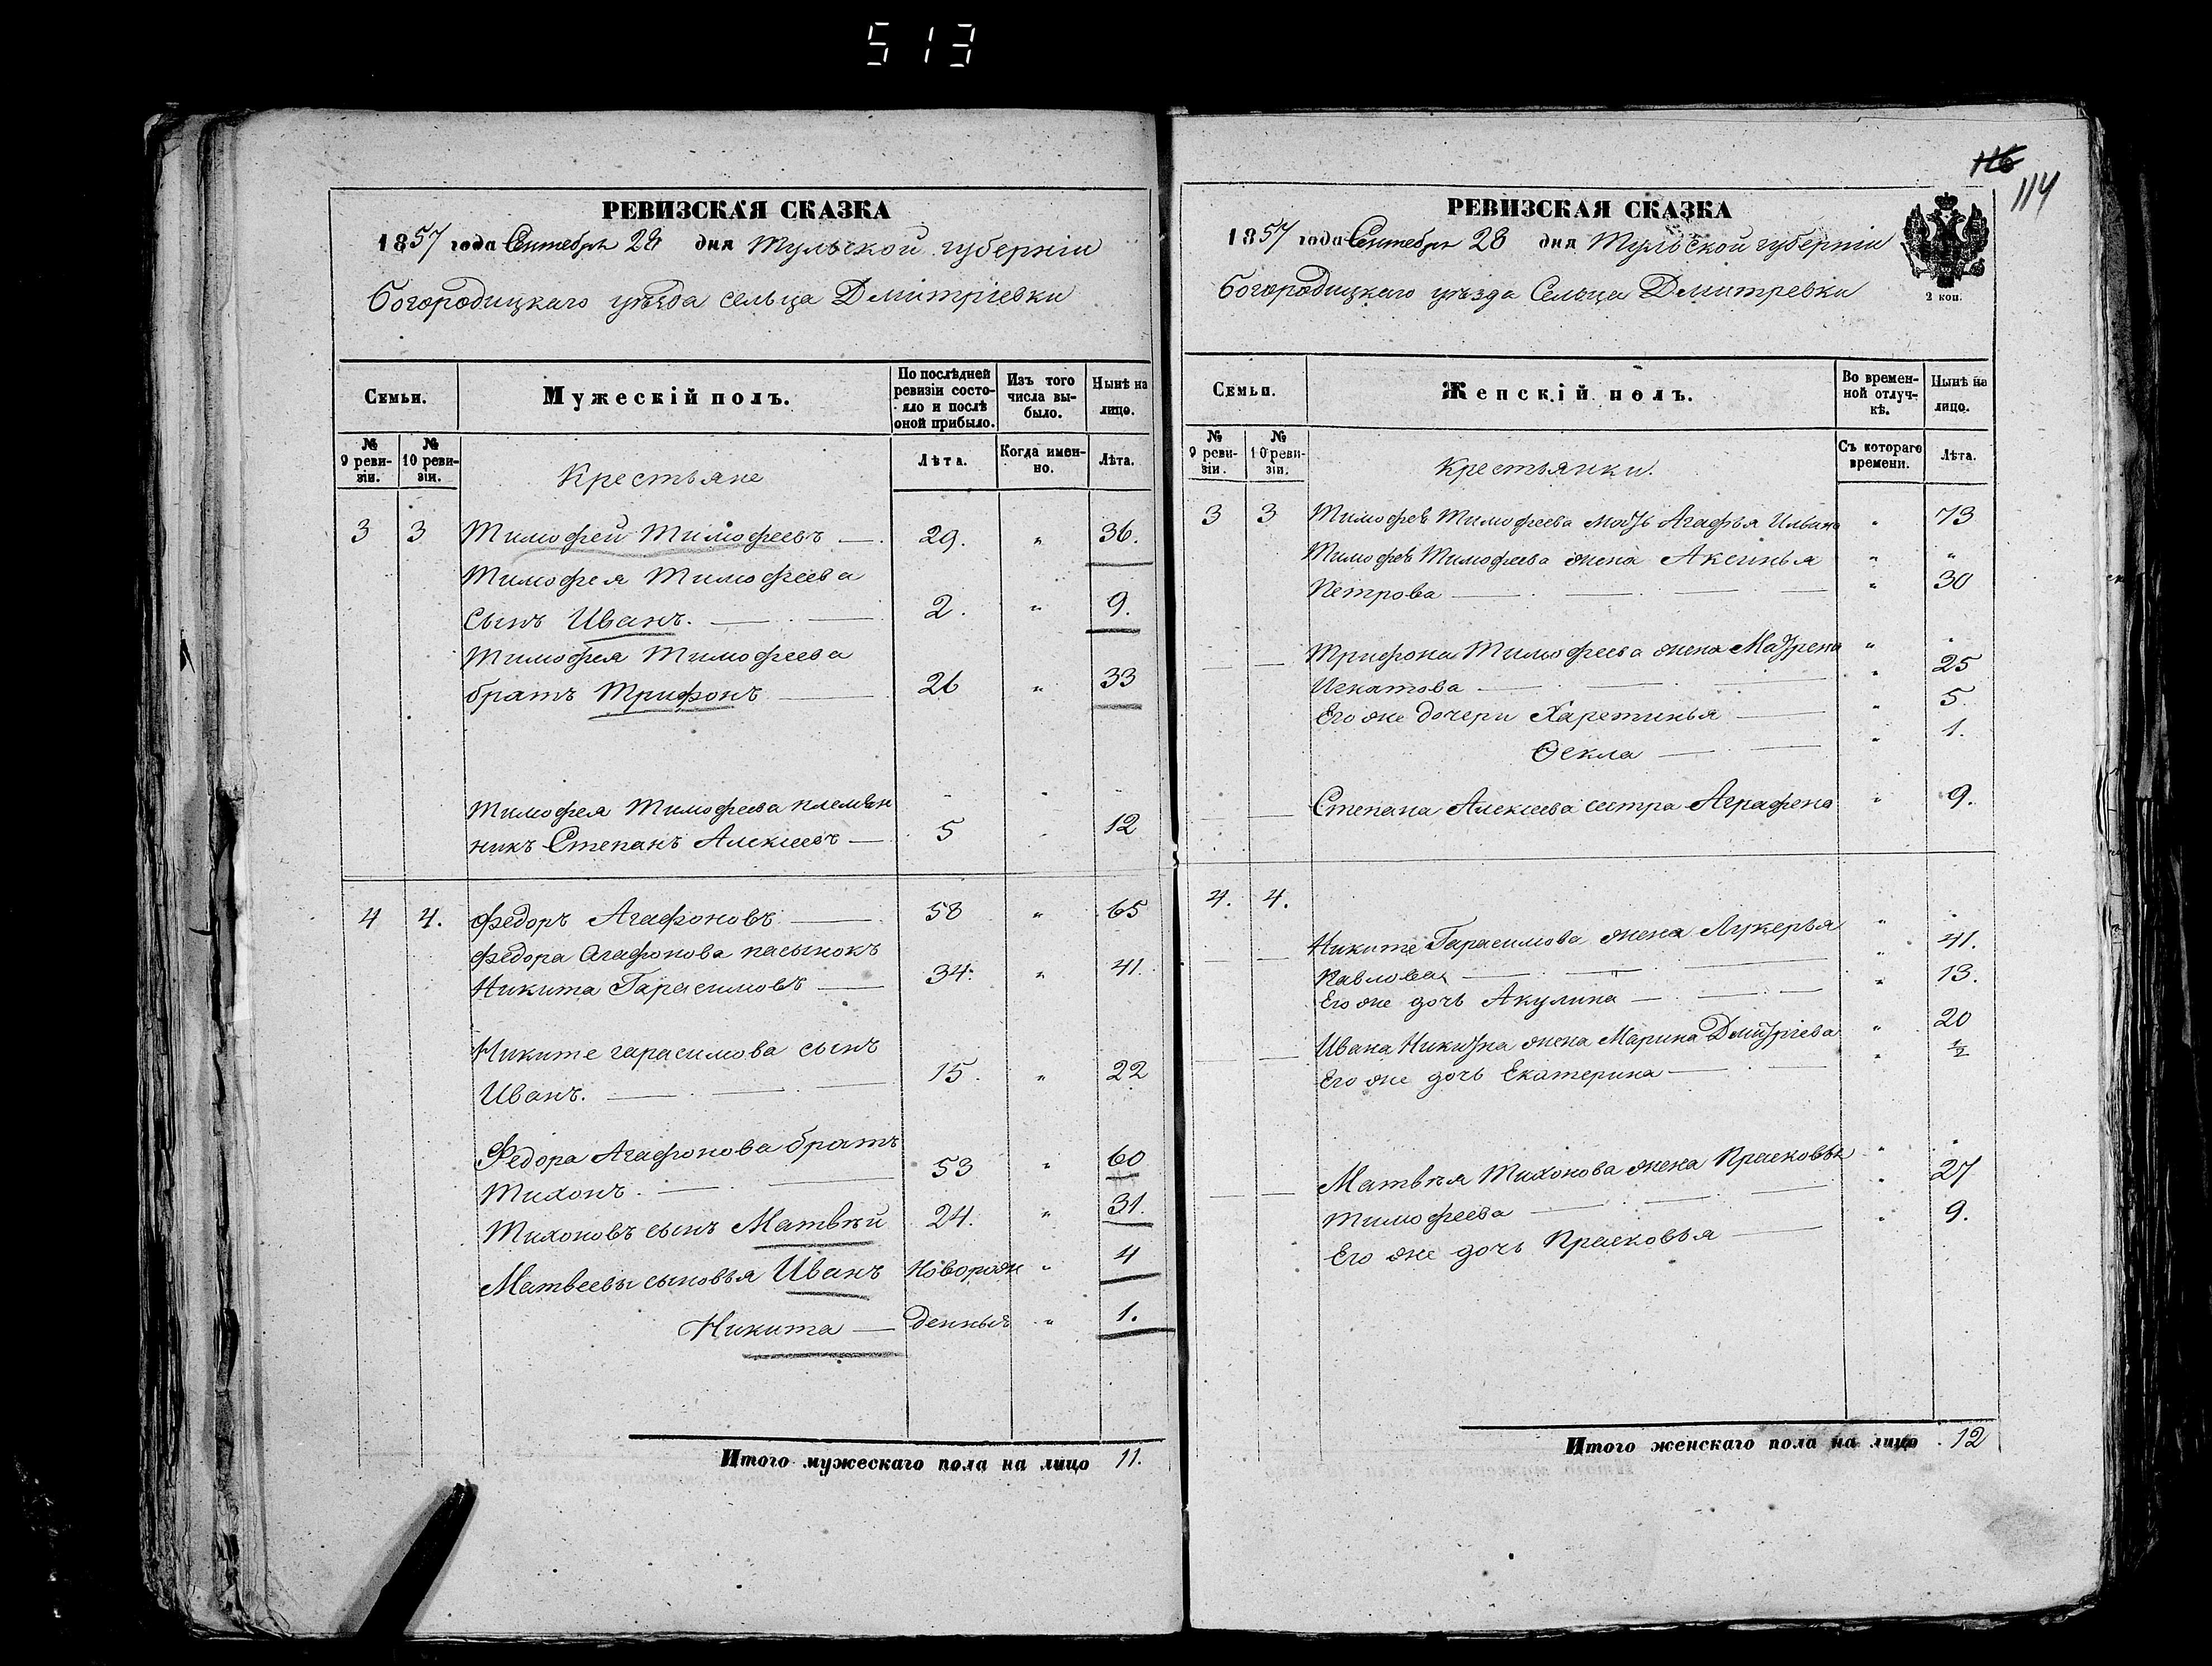 513
РЕВИЗСКАЯ СКАЗКА
1857 года Сентября 28 дня Тульской губерніи
Богородицкаго уѣзда сельца Дмитріевки
Семьи.
Мужескій полъ.
По послѣдней ревизіи состояло и послѣ оной прибыло.
Изъ того числа выбыло.
Нынѣ на лицо.
№ 9 ревизіи.
№ 10 ревизіи.
Крестьяне
Лѣта.
Когда именно.
Лѣта.
3 3 Тимофей Тимофеевъ — 29. " 36.
Тимофея Тимофеева
сынъ Иванъ. — 2. " 9.
Тимофея Тимофеева
братъ Трифонъ — 26 " 33
Тимофея Тимофеева племян
никъ Степанъ Алексеевъ — 5 12
4 4. Федоръ Агафоновъ — 58 " 65
Федора Агафонова пасынокъ
Никита Гарасимовъ — 34. " 41.
Никите гарасимова сынъ
Иванъ. — 15. " 22
Федора Агафонова братъ
Тихонъ. — 53 " 60
Тихоновъ сынъ Матвѣй 24. " 31.
Матвеевы сыновья Иванъ Новорож " 4
Никита — денныя " 1.
Итого мужескаго пола на лицо 11.
116
114
РЕВИЗСКАЯ СКАЗКА
1857 года Сентября 28 дня Тульской губерніи
Богородицкаго уѣзда Сельца Дмитревки
2 коп.
Семьи.
Женскій полъ.
Во временной отлучкѣ.
Нынѣ на лицо.
№ 9 ревизіи.
№ 10 ревизіи.
Крестьянки.
Съ котораго времени.
Лѣта.
3 3 Тимофея Тимофеева мать Агафья Ильина " 73
Тимофея Тимофеева жена Аксинья " "
Петрова — " 30
Трифона Тимофеева жена Матрена "
Игнатова — " 25
Его же дочери Харетинья — " 5.
Ѳекла — " 1.
Степана Алексеева сестра Аграфена " 9.
4. 4.
Никите Гарасимова жена Лукерья "
Павлова — " 41.
Его же дочь Акулина — " 13.
Ивана Никитина жена Марина Дмитріева " 20
Его же дочь Екатерина — " ½
Матвѣя Тихонова жена Прасковья "
Тимофеева — " 27
Его же дочь Прасковья — " 9.
Итого женскаго пола на лицо 12